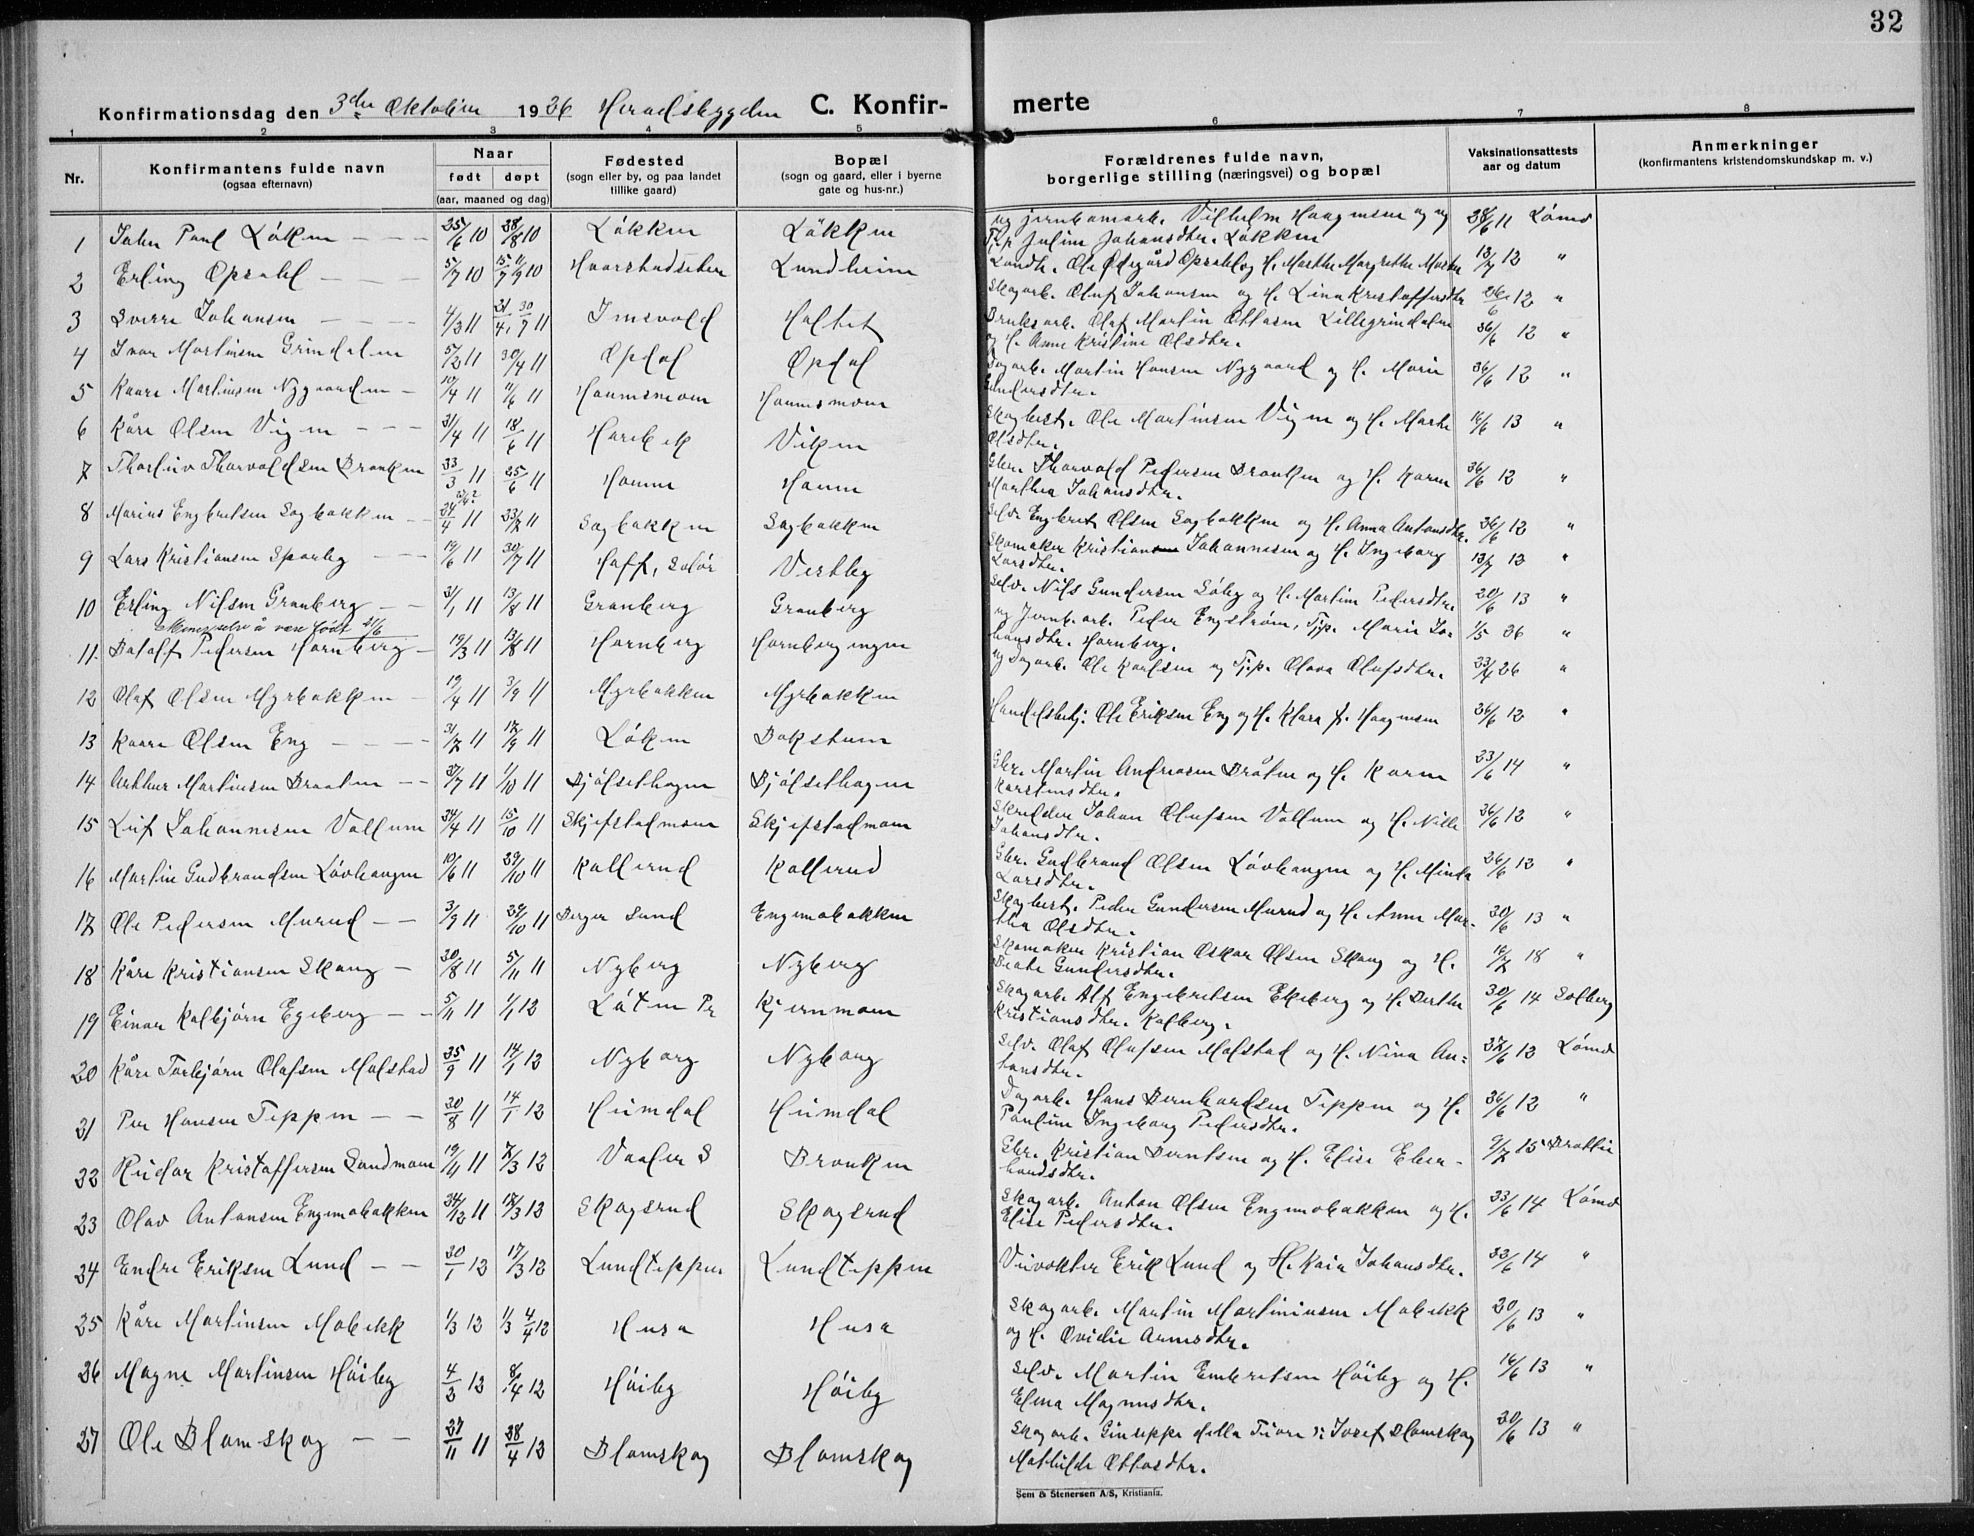 32
Konfirmationsdag den 3die Oktober 1926 Heradsbygden C. Konfir- merte
1 2 3 4 5 6 7 8
Nr.
Konfirmantens fulde navn
(ogsaa efternavn)
Naar
født døpt
(aar, maaned og dag)
Fødested
(sogn eller by, og paa landet
tillike gaard)
Bopæl
(sogn og gaard, eller i byerne
gate og hus-nr.)
Forældrenes fulde navn,
borgerlige stilling (næringsvei) og bopæl
Vaksinationsattests
aar og datum
Anmerkninger
(konfirmantens kristendomskundskap m. v.)
1 John Paul Løken — — — 25/6 10 28/8 10 Løkken Løkken ug jernbanearb. Vilhelm Haagensen og ug 28/6 11 Lømo
Tjp Juline Johansdtr. Løkken
2 Erling Opsahl — — — 5/7 10 Haarstadseteren Lundheim Landh. Ole Ødegård Opsahl og H. Marthe Margrethe 13/7 12 "
3 Sverre Johansen — — — 4/3 11 Imsvold Holtet Skogarb. Oluf Johansen og H. Lina Kristoffersdtr 26/6 12 "
4 Ivar Martinsen Grindalen 5/2 11 30/4 11 Opdal Opdal Bruksarb. Olaf Martin Ottosen Lillegrindalen 26/6 12 "
og H. Anne Kristine Olsdtr.
5 Kaare Martinsen Nygaarden — 10/4 11 11/6 11 Haumsmoen Haumsmoen Dagarb. Martin Hansen Nygaard og H. Marie 26/6 12 "
Gundersdtr.
6 Kåre Olsen Vigen — — — 21/4 11 18/6 11 Harebek Viken Skogbest. Ole Martinsen Vigen og H. Marte 16/6 13 "
Olsdtr.
7 Thorleiv Thorvaldsen Bronken 23/3 11 25/6 11 Haum Haum Gbr. Thorvald Pedersen Bronken og H. Karen 26/6 12 "
Marthea Johansdtr.
8 Marius Engebretsen Sagbakken — — 24/4 11 23/7 11 Sagbakken Sagbakken Selv. Engebret Olsen Sagbakken og H. Anna Antonsdtr. 26/6 12 "
9 Lars Kristiansen Sparby — — — 19/6 11 30/7 11 Hoff, Solør Vestby Skomaker Kristian Johannesen og H. Ingeborg 13/7 12 "
Larsdtr.
10 Erling Nilsen Granberg — — 21/1 11 13/8 11 Granberg Granberg Selv. Nils Gundersen Søby og H. Martine Pedersdtr. 20/6 13 "
Mener selv å være født 21/6
11. Detloff Pedersen Hornberg — 19/3 11 13/8 11 Hornberg Hornbergengen ug Jernb.arb. Peder Engstrøm, Tjp. Marie Jo- 1/5 26 "
hansdtr. Hornberg.
12 Olaf Olsen Myrbakken — 19/4 11 3/9 11 Myrbakken Myrbakken ug Dagarb. Ole Karlsen og Tjp. Olava Olufsdtr. 23/4 26 "
13 Kaare Olsen Eng — — — — 31/7 11 17/9 11 Løken Bakstuen Handelsbetj. Ole Eriksen Eng og H. Klara f. Haagensen 26/6 12 "
14 Arthur Martinsen Braaten — — 27/7 11 1/10 11 Bjølsethagen Bjølsethagen Gbr. Martin Andreasen Bråten og H. Karen 23/6 14 "
Karstensdtr.
15 Leif Johannesen Vollum 24/4 11 15/10 11 Skjefstadmoen Skjefstadmoen Skredder Johan Olufsen Vollum og H. Nille 26/6 12 "
Johansdtr.
16 Martin Gudbrandsen Løvhaugen 10/6 11 29/10 11 Kallerud Kallerud Gbr. Gudbrand Olsen Løvhaugen og H. Minda 26/6 12 "
Larsdtr.
17 Ole Pedersen Murud — — 3/9 11 29/10 11 Berger Sund Engemobakken Skogbest. Peder Gundersen Murud og H. Anne Mar- 20/6 13 "
thea Olsdtr.
18 Kåre Kristiansen Skaug — 20/8 11 5/11 11 Nyberg Nyberg Skomaker Kristian Oskar Olsen Skaug og H. 16/7 18 "
Beate Gundersdtr.
19 Einar Kolbjørn Egeberg — — 5/11 11 1/1 12 Løten Pr Kjernmoen Skogarb. Alf Engebretsen Ekeberg og H. Berthe 30/6 14 Solberg
Kristiansdtr. Kolberg.
20 Kåre Torbjørn Olafsen Malstad 25/9 11 14/1 12 Nyborg Nyborg Selv. Olaf Olufsen Malstad og H. Nina An- 27/6 12 Lømo
tonsdtr.
21 Per Hansen Teppen — — 20/8 11 14/1 12 Heimdal Heimdal Dagarb. Hans Bernhardsen Teppen og H. 26/6 12 "
Pauline Ingeborg Pedersdtr.
22 Reidar Kristoffersen Sandmoen 19/11 11 7/3 12 Vaaler S Bronken Gbr. Kristian Berntsen og H. Elise Eber- 9/7 15
hardsdtr.
23 Olav Antonsen Engemobakken 24/12 11 17/3 12 Skogsrud Skogsrud Skogarb. Anton Olsen Engemobakken og H. 23/6 14 Lømo
Elise Pedersdtr.
24 Endre Eriksen Lund — — 20/1 12 17/3 12 Lundteppen Lundteppen Veivokter Erik Lund og H. Kaia Johansdtr. 23/6 14 "
25 Kåre Martinsen Mobekk 1/3 12 1/3 4/4 12 Husa Husa Skogarb. Martin Martiniusen Mobekk 20/6 13 "
og H. Ovidie Arnesdtr.
26 Magne Martinsen Høiby 4/2 12 8/4 12 Høiby Høiby Selv. Martin Embretsen Høiby og H. 16/6 13 "
Elena Magnusdtr.
27 Ole Blomskog — — 27/11 11 28/4 12 Blomskog Blomskog Skogarb. Giuseppe della Fiore Josef Blomskog 20/6 13 "
Mathilde Ottosdtr.
Sem & Stenersen A/S, Kristiania.